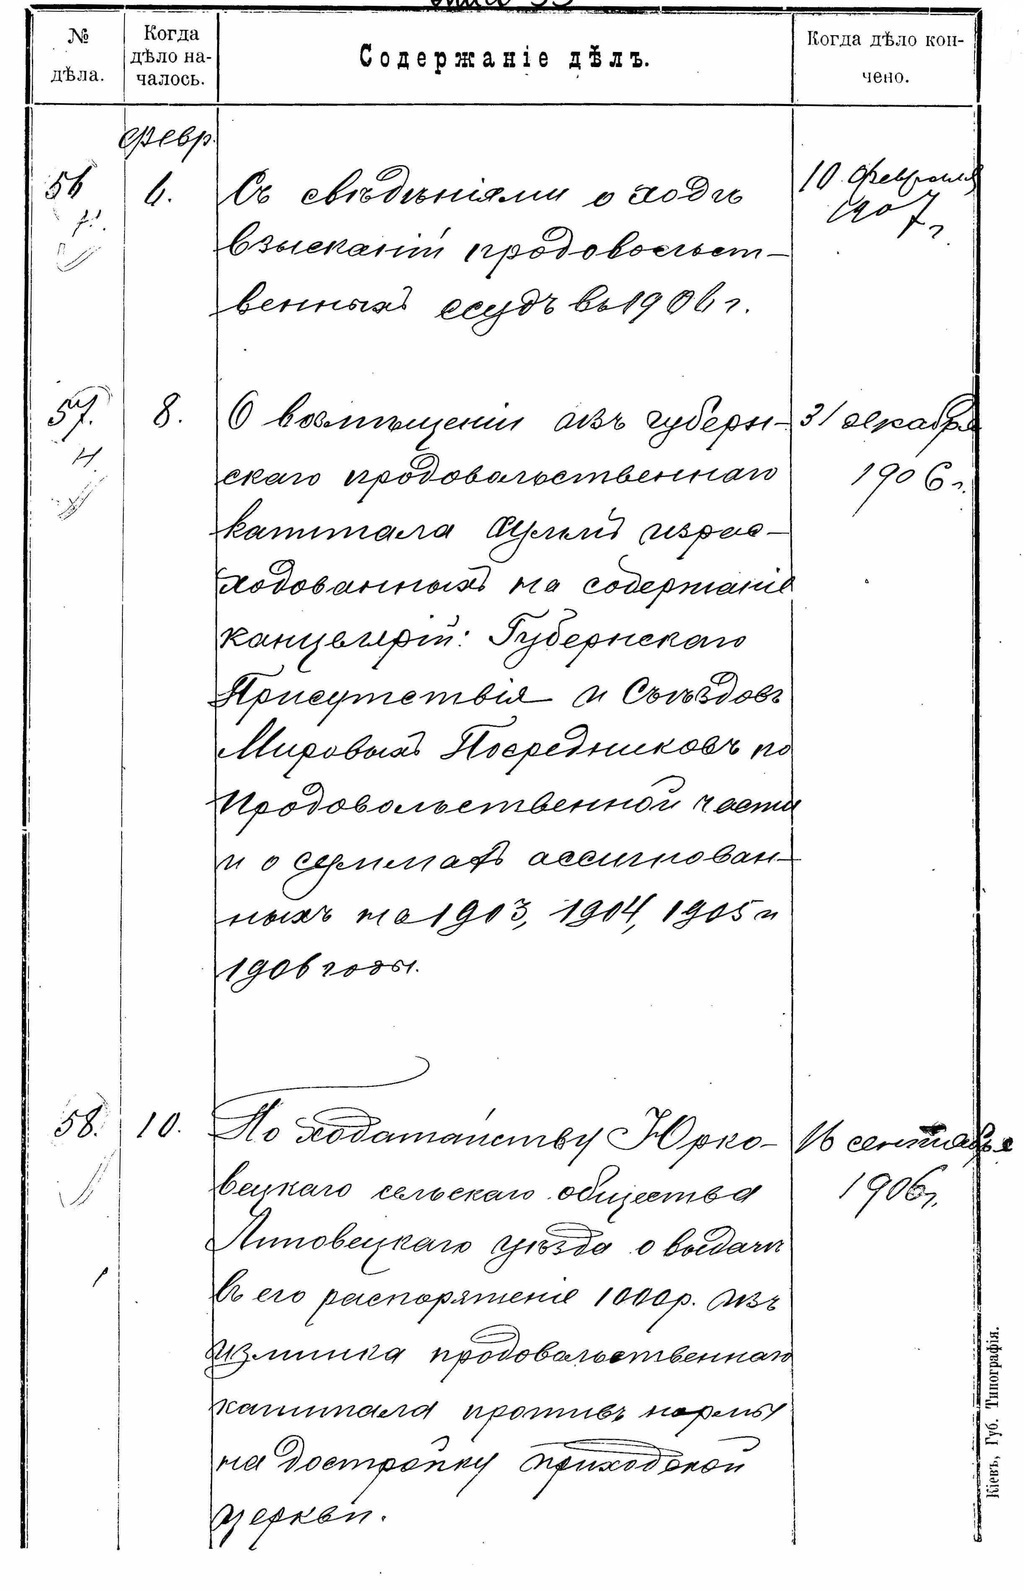 № дѣла.
Когда дѣло на-
чалось.
Содержаніе дѣлъ.
Когда дѣло кон-
чено.
Февр.
56
6.
Съ свѣдѣніями о ходѣ
взысканій продовольст-
венныхъ ссудъ въ 1906 г.
10 февраля
1907 г.
57.
8.
О возмѣщеніи изъ губерн-
скаго продовольственнаго
капитала суммъ израс-
ходованныхъ на содержаніе
канцелярій: Губернскаго
Присутствія и Съѣздовъ
Мировыхъ Посредниковъ по
Продовольственной части
и о суммахъ ассигнован-
ныхъ на 1903, 1904, 1905 и
1906 годы.
31 декабря
1906 г.
58.
10.
По ходатайству Юрко-
вецкаго сельскаго общества
Липовецкаго уѣзда о выдачи
въ его распоряженіе 1000 р. изъ
излишка продовольственнаго
капитала противъ нормы
на достройку приходской
церкви.
16 сентября
1906 г.
Кіевъ, Губ. Типографія.